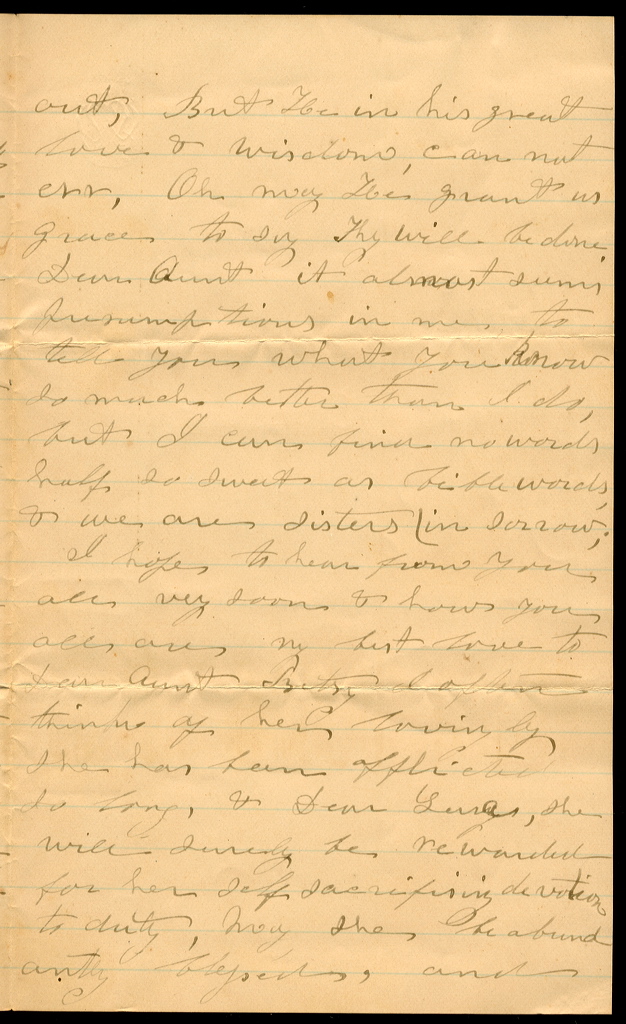 out, But He in his great
love & wisdom, can not
err, Oh may He grant us
grace to say Thy will be done
Dear Aunt it almost seems
presumptious in me, to
tell you what you know
so much better than I do,
but I can find no words
half so sweet as bible words,
& we are sisters (in sorrow;
I hope to hear from you
all very soon & how you
all are, my best love to
Dear Aunt Betsy I often
think of her lovingly
she has been afflicted
so long, & Dear she
will surely be rewarded
for her self sacrifising devotion
to duty, may she be abund
antly blessed, and